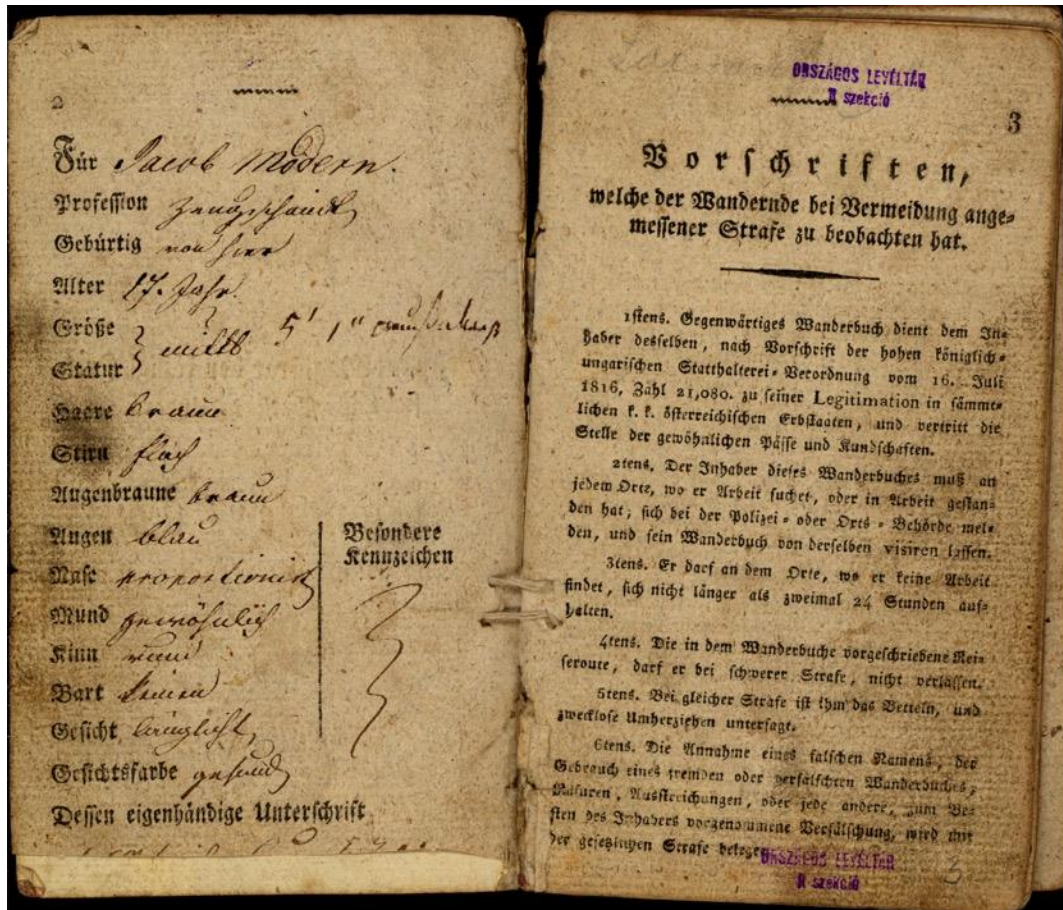 2
Für Jacob Modern.
Profession Zeugschmidt
Gebürtig von hier
Alter 17. Jahr
Größe
Statur } mittl 5' 1"
Haare braun
Stirn flach
Augenbraune braun
Augen blau
Nase proportionirt
Mund gewöhnlich
Kinn rund
Bart keinen
Gesicht länglicht
Gesichtsfarbe gesund
Besondere
Kennzeichen
Dessen eigenhändige Unterschrift
ORSZÁGOS LEVÉLTÁR
R szekció
3
Vorschriften,
welche der Wandernde bei Vermeidung ange-
messener Strafe zu beobachten hat.
1stens. Gegenwärtiges Wanderbuch dient dem In-
haber desselben, nach Vorschrift der hohen königlich-
ungarischen Statthalterei-Verordnung vom 16. Juli
1816, Zahl 21,080. zu seiner Legitimation in sämmt-
lichen k. k. österreichischen Erbstaaten, und vertritt die
Stelle der gewöhnlichen Pässe und Kundschaften.
2tens. Der Inhaber dieses Wanderbuches muß an
jedem Orte, wo er Arbeit suchet, oder in Arbeit gestan-
den hat, sich bei der Polizei- oder Orts-Behörde mel-
den, und sein Wanderbuch von derselben visiren lassen.
3tens. Er darf an dem Orte, wo er keine Arbeit
findet, sich nicht länger als zweimal 24 Stunden auf-
halten.
4tens. Die in dem Wanderbuche vorgeschriebene Rei-
seroute, darf er bei schwerer Strafe, nicht verlassen.
5tens. Bei gleicher Strafe ist ihm das Betteln, und
zwecklose Umherziehen untersagt.
6tens. Die Annahme eines falschen Namens, der
Gebrauch eines fremden oder verfälschten Wanderbuches,
Rasuren, Ausstreichungen, oder jede andere, zum Be-
sten des Inhabers vorgenommene Verfälschung, wird mit
der gesetzlichen Strafe belegt
ORSZÁGOS LEVÉLTÁR
R szekció
3